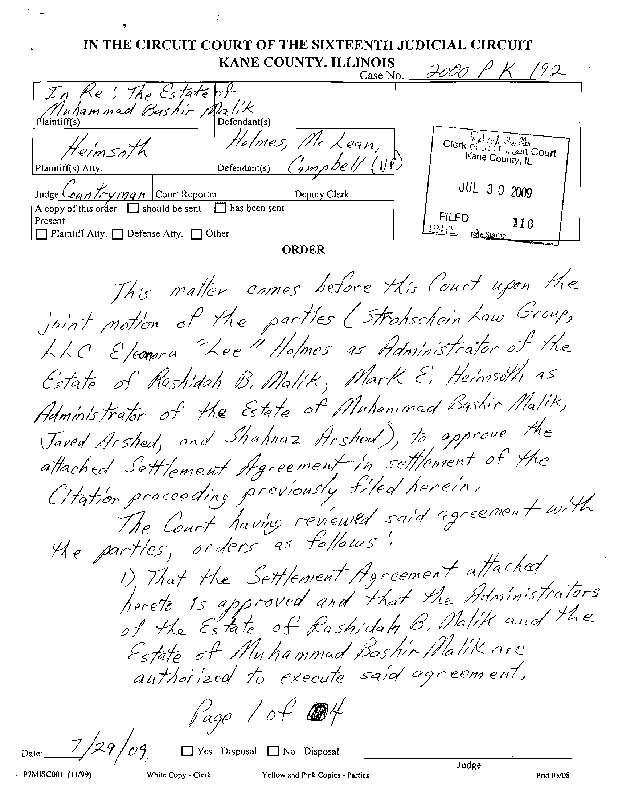 IN THE CIRCUIT COURT OF THE SIXTEENTH JUDICIAL CIRCUIT
KANE COUNTY, ILLINOIS
Case No. 2000 P K 192
In Re: The Estate of
Muhammad Bashir Malik
Plaintiff(s) Defendant(s)
Heimsoth Holmes, McLean,
Campbell
Plaintiff(s) Atty. Defendant(s)
Clerk of Court
Kane County, IL
JUL 30 2009
FILED 110
Judge Countryman Court Reporter Deputy Clerk
A copy of this order should be sent has been sent
Present
Plaintiff Atty. Defense Atty. Other
ORDER
This matter comes before this Court upon the
joint motion of the parties (Strohschein Law Group,
LLC Eleonora "Lee" Holmes as Administrator of the
Estate of Rashidah B. Malik, Mark E. Heimsoth as
Administrator of the Estate of Muhammad Bashir Malik,
Javed Arshed, and Shahnaz Arshed), to approve the
attached Settlement Agreement in settlement of the
Citation proceeding previously filed herein.
The Court having reviewed said agreement with
the parties, orders as follows:
1). That the Settlement Agreement attached
hereto is approved and that the Administrators
of the Estate of Rashidah B. Malik and the
Estate of Muhammad Bashir Malik are
authorized to execute said agreement.
Page 1 of 4
Date: 7/29/09 Yes Disposal No Disposal
Judge
P7MISC001 (11/99) White Copy - Clerk Yellow and Pink Copies - Parties